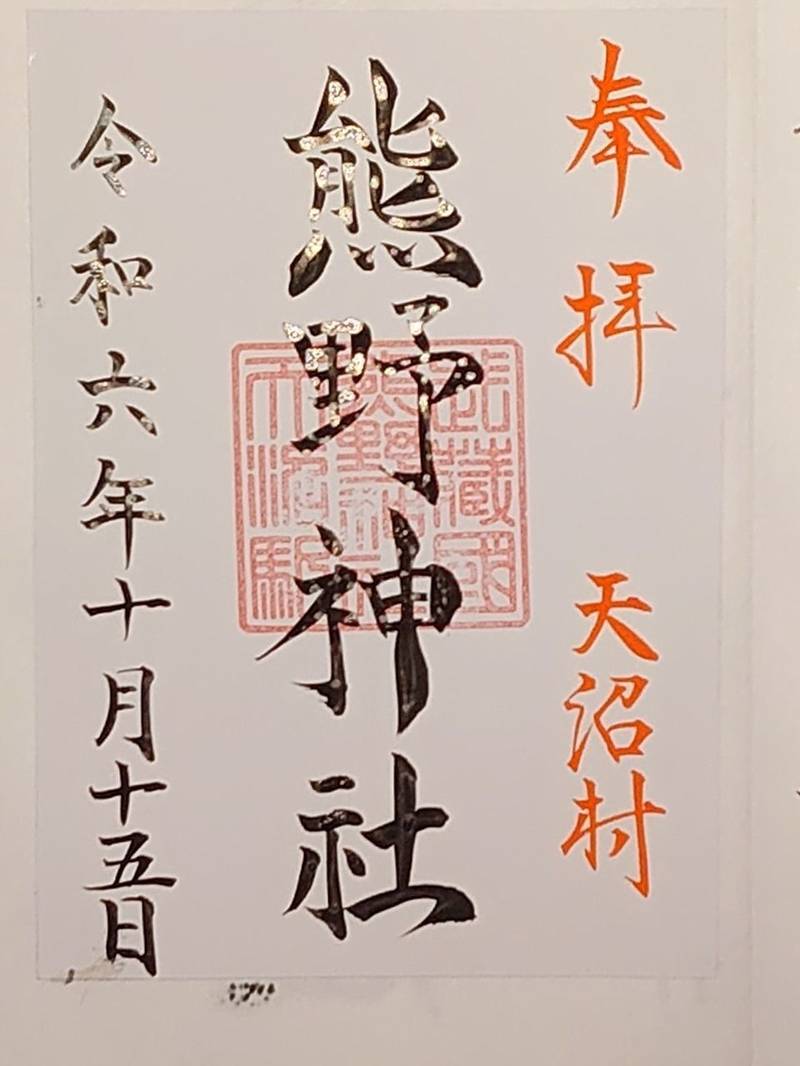 奉拝 天沼村
熊野神社
武蔵國
熊野神社
令和六年十月十五日